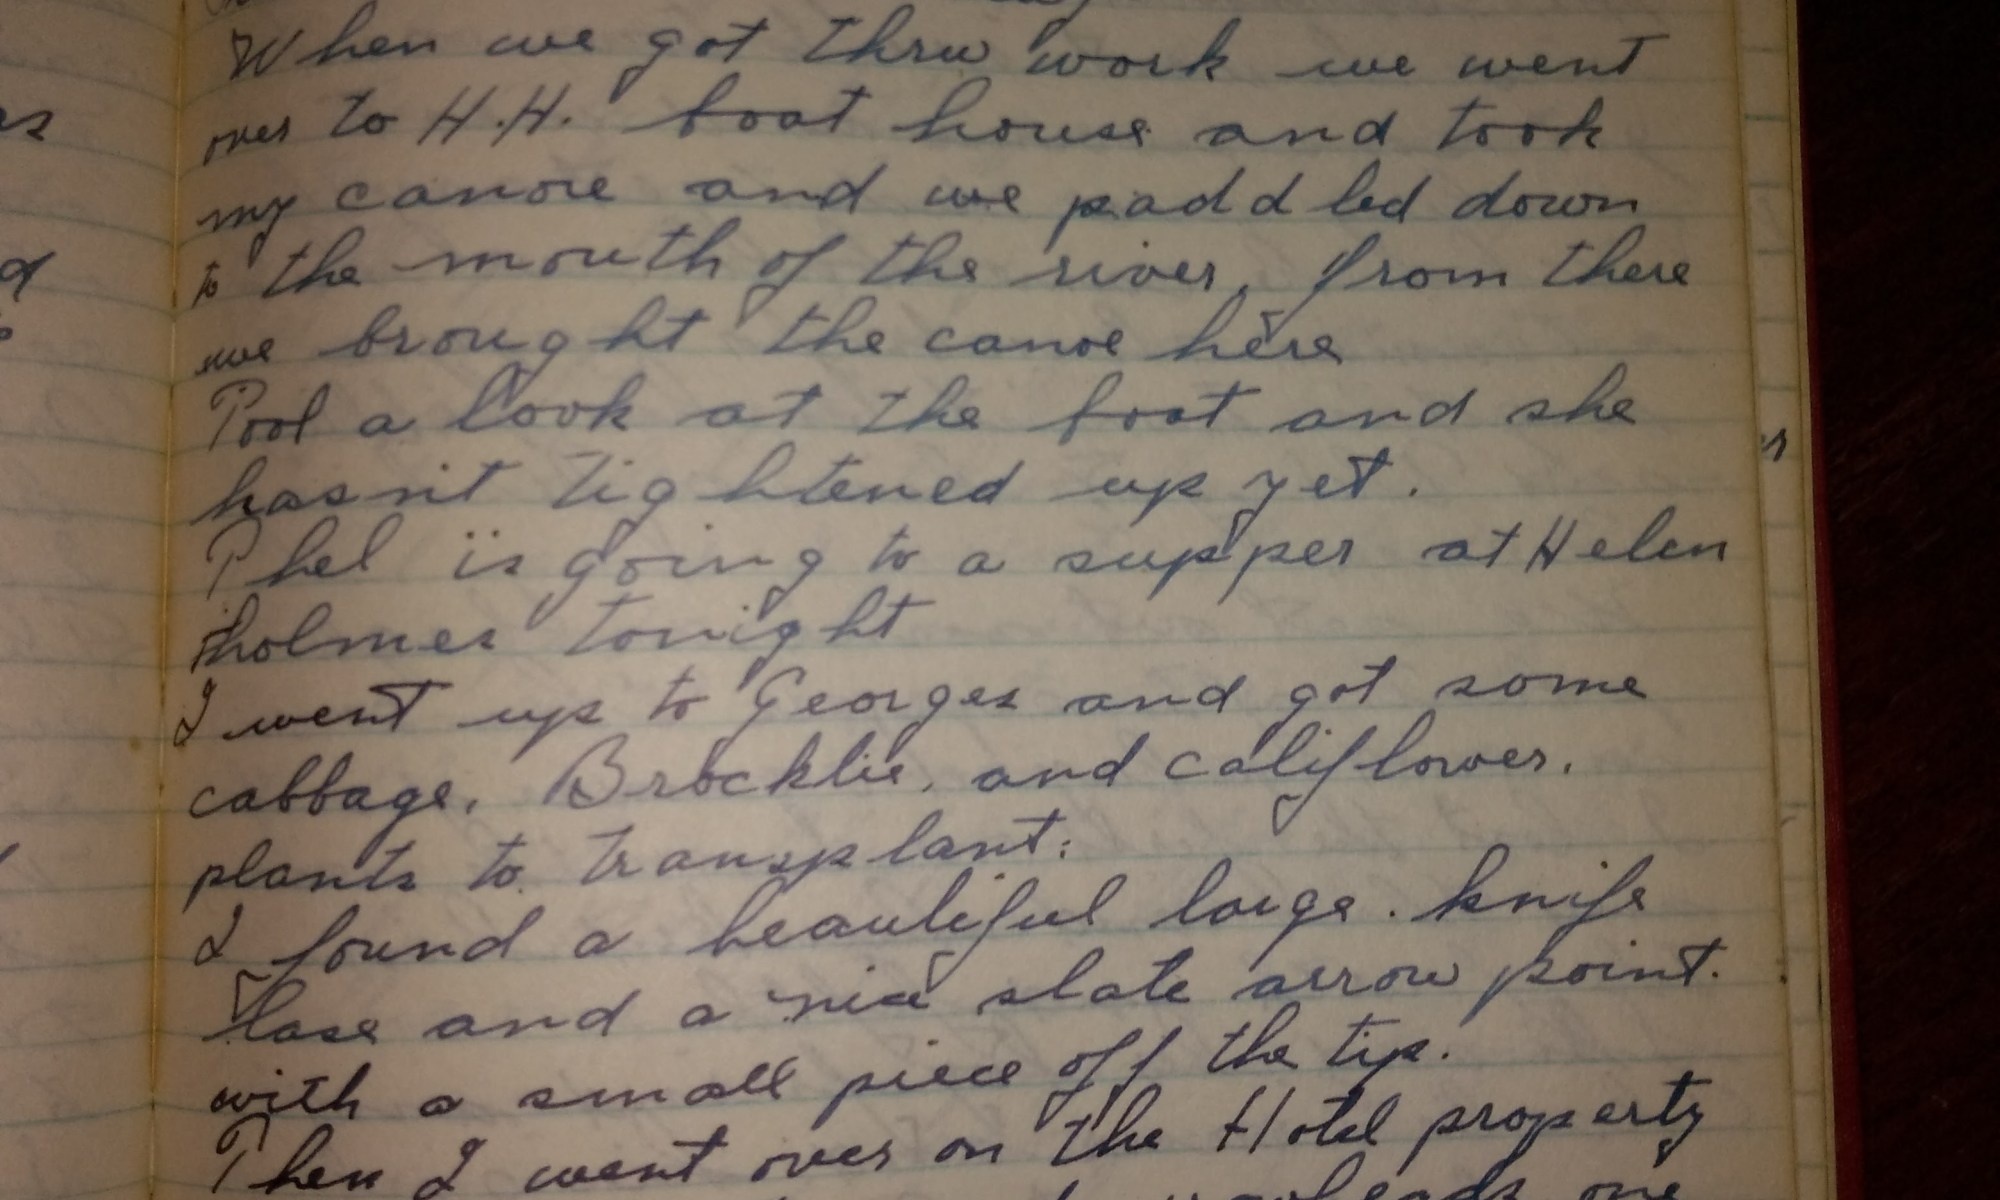 When we got thru work we went
over to H.H. boat house and took
my canoe and we paddled down
to the mouth of the river, from there
we brought the canoe here
Pool a look at the boat and she
hasn't tightened up yet.
Phel is going to a supper at Helen
Holmes tonight
I went up to Georges and got some
cabbage, Brocklie, and califlower.
plants to transplant.
I found a beautiful large. knife
base and a nice slate arrow point.
with a small piece off the tip.
Then I went over on the Hotel property
one